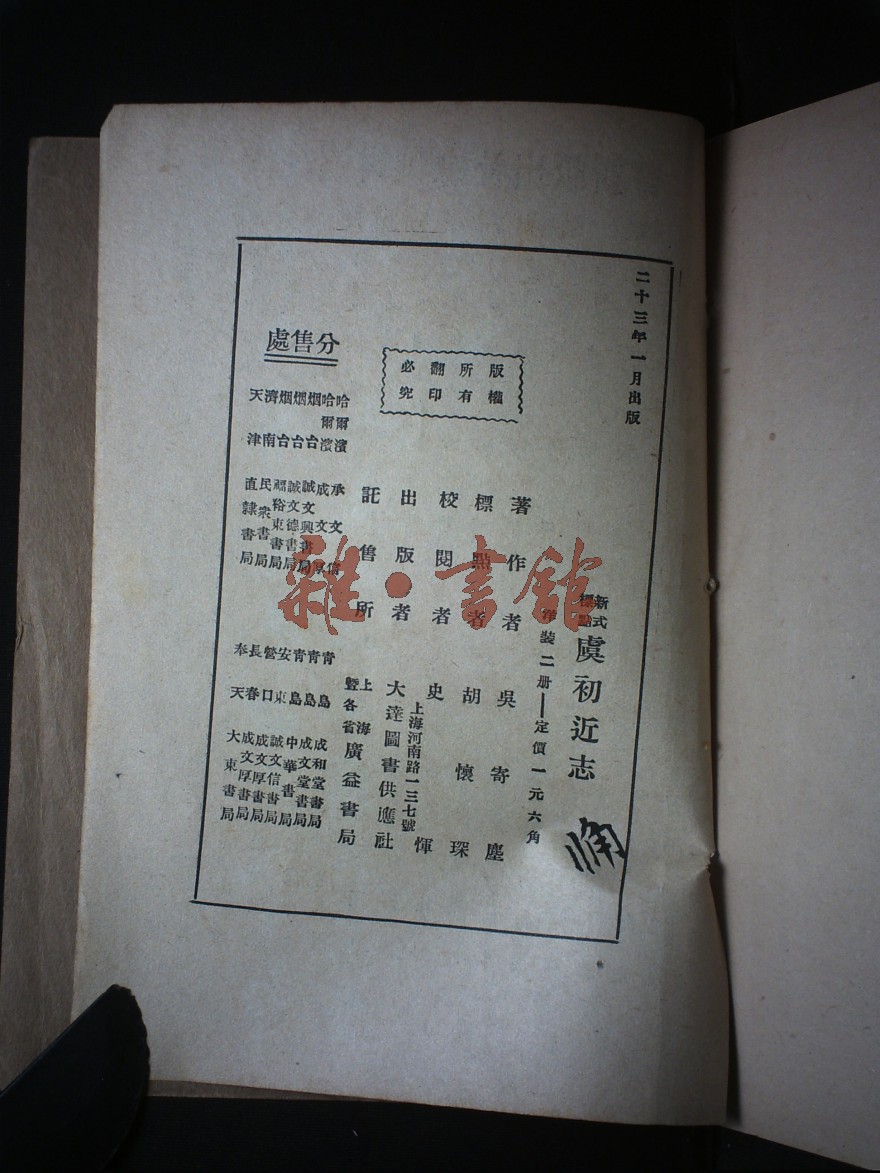 二十三年一月出版
新式標點
虞初近志
洋裝二册——定價一元六角
著作者 吳寄塵
標點者 胡懷琛
校閱者 史惲
出版者 大達圖書供應社
上海河南路一三七號
託售所 上海暨各省廣益書局
版權所有
翻印必究
分售處
哈爾濱 承文信
哈爾濱 成文厚
烟台 誠文興書局
烟台 誠文德書局
烟台 福裕東書局
濟南 民衆書局
天津 直隸書局
青島 成和堂書局
青島 成文堂書局
青島 中華書局
安東 誠文信書局
營口 成文厚書局
長春 成文厚書局
奉天 大東書局
雜·書館